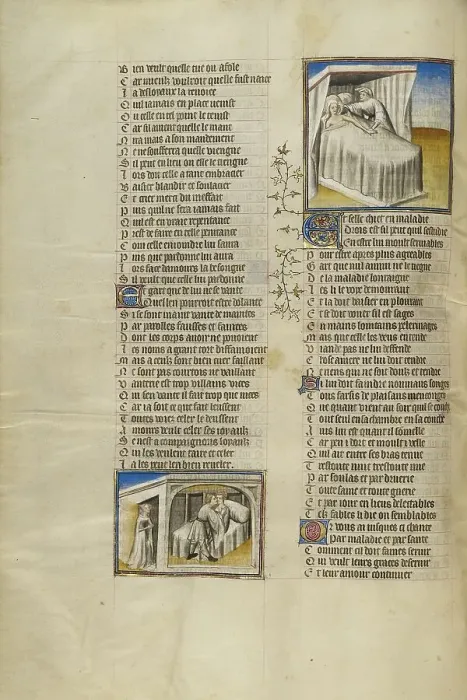 B ien veult quelle tue ou afole
C ar mieulx vouldroit quelle fust
I a desloyaux la
Q ui iamais en place venist
O u celle en tel point le tenist
C ar sil aduient quelle le mant
a son mandement
N e ne souffrera quelle viengne
S il peut en lieu ou elle le tiengne
L ors doit celle a tart embracier
B aisier blandir et soulacier
E t crier merci du meffait
P uis quil ne sera iamais fait
Q uil est en vraie repentance
P rest de faire en celle penitance
C om celle enioindre lui saura
P uis que pardonne lui aura
L ors face damours la besongne
S il veult que celle lui pardonne
E t gart que de lui ne se vante
Quel len pourroit estre dolante
S i se sont maint vante de maintes
P ar parolles faulses et faintes
D ont les corps auoir ne pouoient
L es noms a grant tort diffamoient
M ais a ceulx sont bien cuer faillant
N e sont pas courtois ne vaillant
V anterie est trop villains vices
Q ui sen vante il fait trop que nices
C ar ia soit ce que fait leussent
T outes voies celer le deussent
A mours veult celer ses ioyaulx
S e nest a compaignons loyaulx
Q ui les veulent taire et celer
L a les peut len bien reueler
E t selle chiet en maladie
Drois est sil peut quil sestudie
En estre lui moult seruiables
P our estre apres plus agreables
G art que nul ennuy ne le tiegne
D e la maladie loingtaigne
L es lui le voye demourant
E t la doit baisier en plourant
E t se doit vouer sil est sages
E n mains lointains pelerinages
M ais que celle les veus entende
V iande pas ne lui deffende
C hose amere ne lui doit tendre
N e riens qui ne soit doulx et tendre
S i lui doit faindre nouuiaux songes
T ous farsis de plaisans menconges
Q ue quant vient au soir quil se couche
T out seul en sa chambre en sa couche
A uis lui est quant il sommeille
C ar peu i dort et moult i veille
Q uil ait entre ses bras tenue
T restoute nuit trestoute nue
P ar soulas et par druerie
T oute saine et toute guerie
E t par iour en lieux delectables
T elz fables li die ou semblables
O r vous ay iusques ci chante
Par maladie et par sante
C omment cil doit fames seruir
Q ui veult leurs graces deseruir
E t leur amour continuer